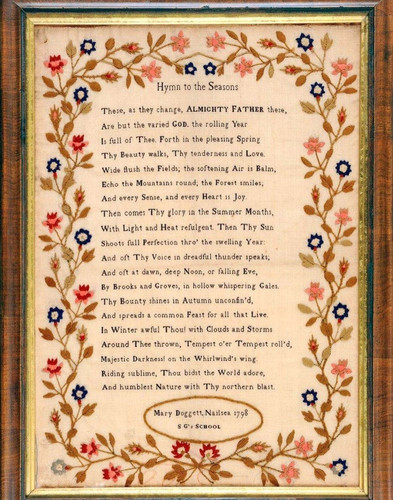 Hymn to the Seasons
These, as they change, ALMIGHTY FATHER these,
Are but the varied GOD. the rolling Year
Is full of Thee. Forth in the pleasing Spring
Thy Beauty walks, Thy tenderness and Love.
Wide flush the Fields; the softening Air is Balm,
Echo the Mountains round; the Forest smiles;
And every Sense, and every Heart is Joy.
Then comes Thy glory in the Summer Months,
With Light and Heat refulgent. Then Thy Sun
Shoots full Perfection thro' the swelling Year:
And oft Thy Voice in dreadful thunder speaks;
And oft at dawn, deep Noon, or falling Eve,
By Brooks and Groves, in hollow whispering Gales.
Thy Bounty shines in Autumn unconfin'd,
And spreads a common Feast for all that Live.
In Winter awful Thou! with Clouds and Storms
Around Thee thrown, Tempest o'er Tempest roll'd,
Majestic Darkness! on the Whirlwind's wing.
Riding sublime, Thou bidst the World adore,
And humblest Nature with Thy northern blast.
Mary Doggett, Nailsea 1798
S G's SCHOOL